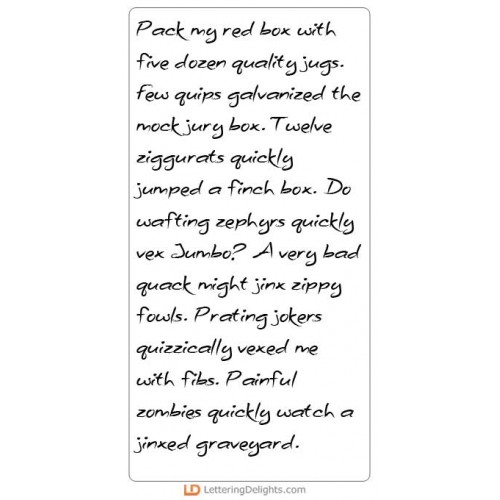 Pack my red box with
five dozen quality jugs.
Few quips galvanized the
mock jury box. Twelve
ziggurats quickly
jumped a finch box. Do
wafting zephyrs quickly
vex Jumbo? A very bad
quack might jinx zippy
fowls. Prating jokers
quizzically vexed me
with fibs. Painful
zombies quickly watch a
jinxed graveyard.
LD LetteringDelights.com